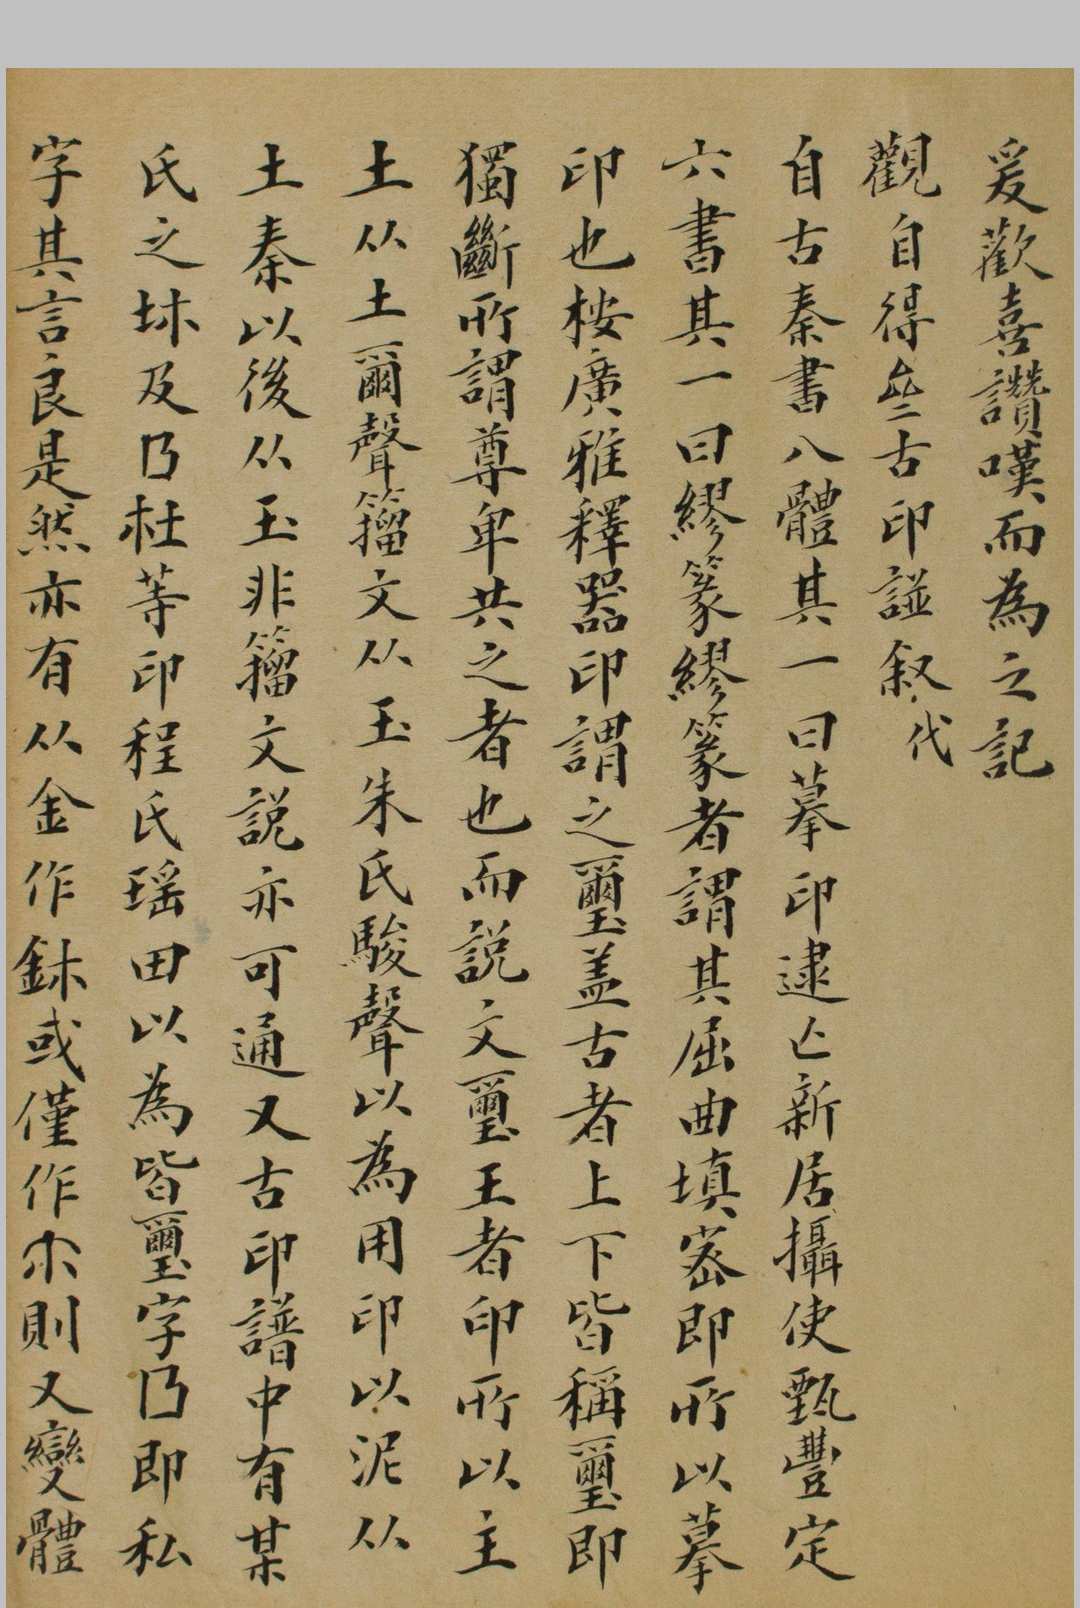 爰歡喜讚嘆而為之記
觀自得坐古印諩叙代
自古秦書八體其一曰摹印逮亡新居攝使甄豐定
六書其一曰繆篆繆篆者謂其屈曲填密即所以摹
印也桉廣雅釋器印謂之璽盖古者上下皆稱璽即
獨斷所謂尊卑共之者也而說文璽王者印所以主
土从土爾聲籀文从玉朱氏駿聲以為用印以泥从
土秦以後从玉非籀文說亦可通又古印譜中有某
氏之坏及㔿杜等印程氏瑶田以為皆璽字㔿即私
字其言良是然亦有从金作鉥或僅作尒則又變體